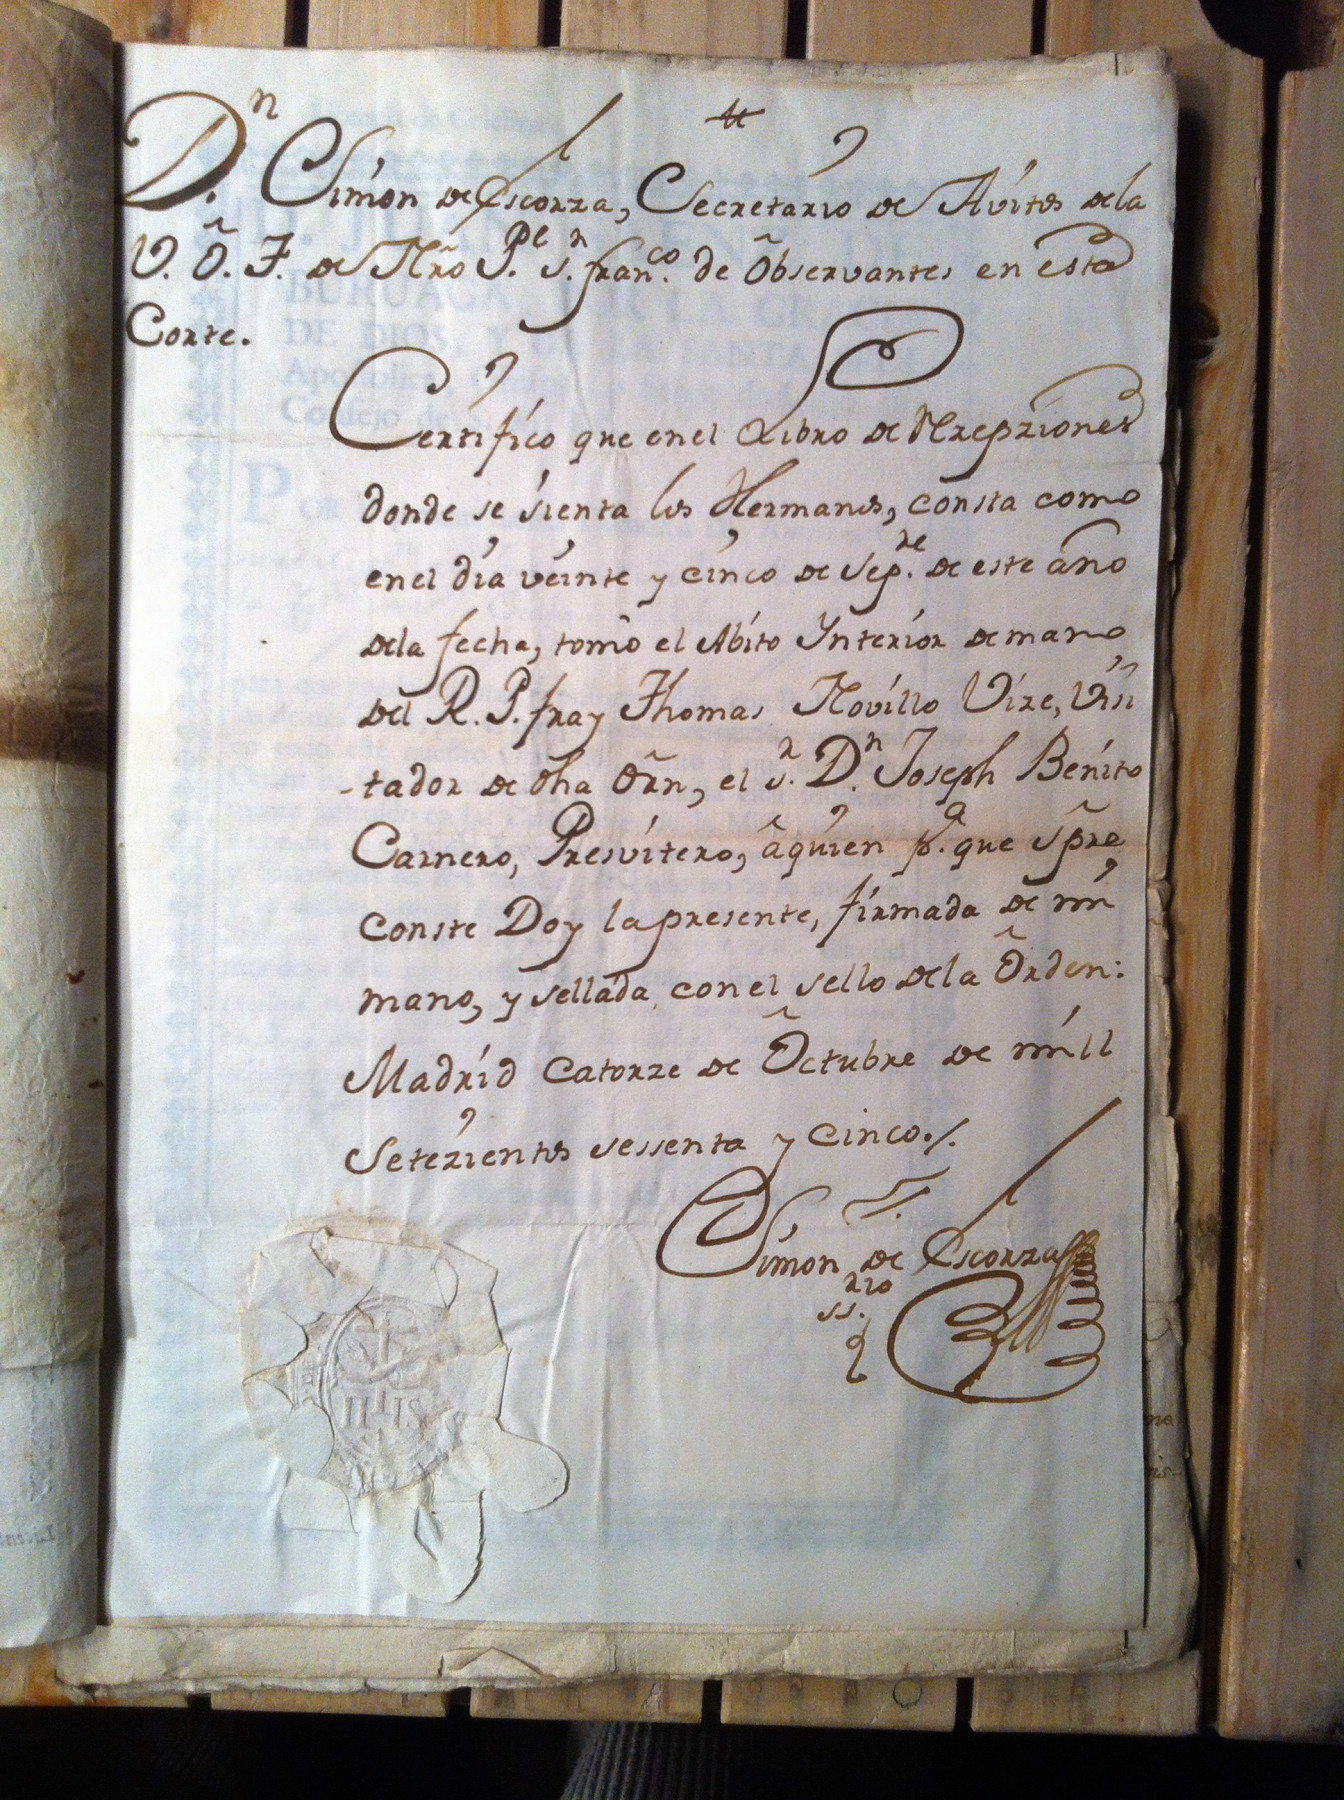 tt
Dn. Simon de Escorza, Secretario de Avitos dela
V. O. T. de Nro P.e S.n Fran.co de Observantes en esta
Corte.
Certifico que enel Libro de Rrepziones
donde se sienta los Hermanos, consta como
enel dia veinte y cinco de Sep.re de este año
dela fecha, tomò el Abito Ynterior de mano
del R. P. fray Thomas Novillo Vize, Visi
-tador de dha Orn, el S.r D.n Joseph Benito
Carnero, Presvitero, â quien p.a que spre
conste Doy la presente, firmada de mi
mano, y sellada con el sello dela Orden:
Madrid Catorze de Octubre de mill
Setezientos sessenta y cinco./.
Simon de Escorza
ss.rio
IHS